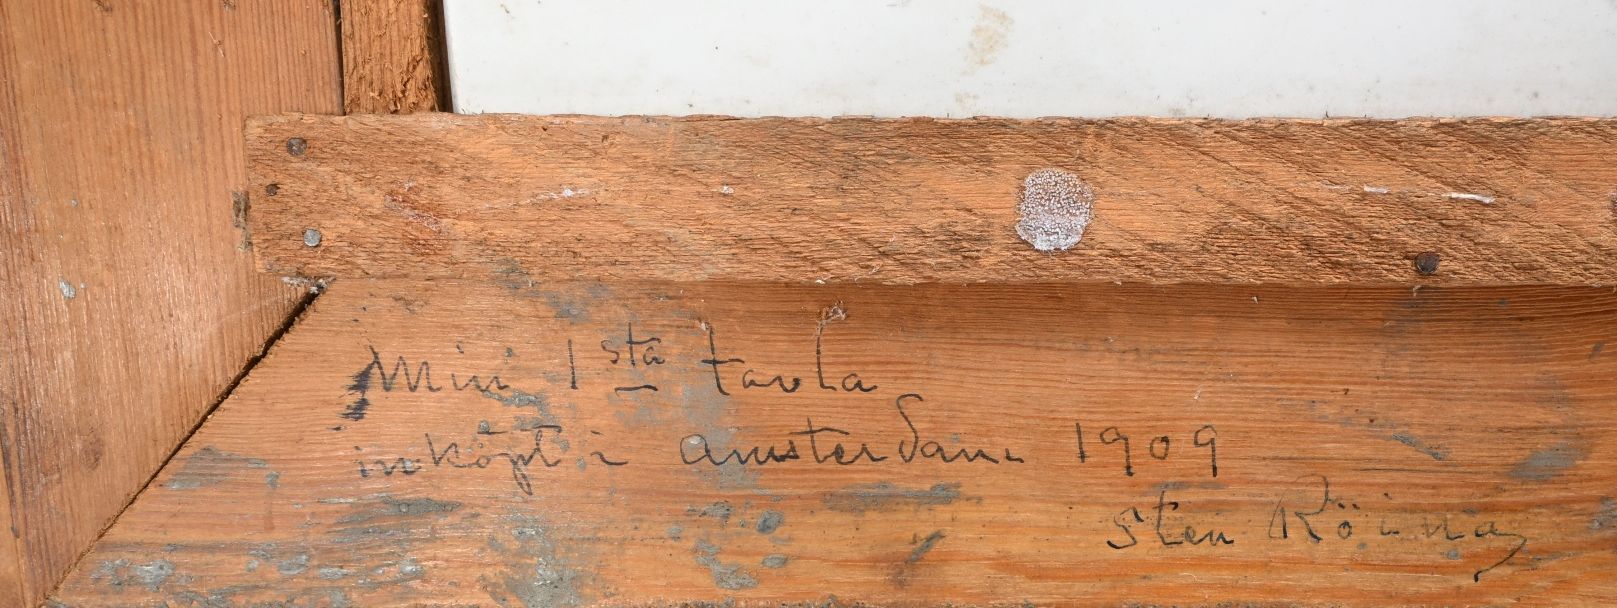 Min 1sta tavla
inköpt i Amsterdam 1909
Sten